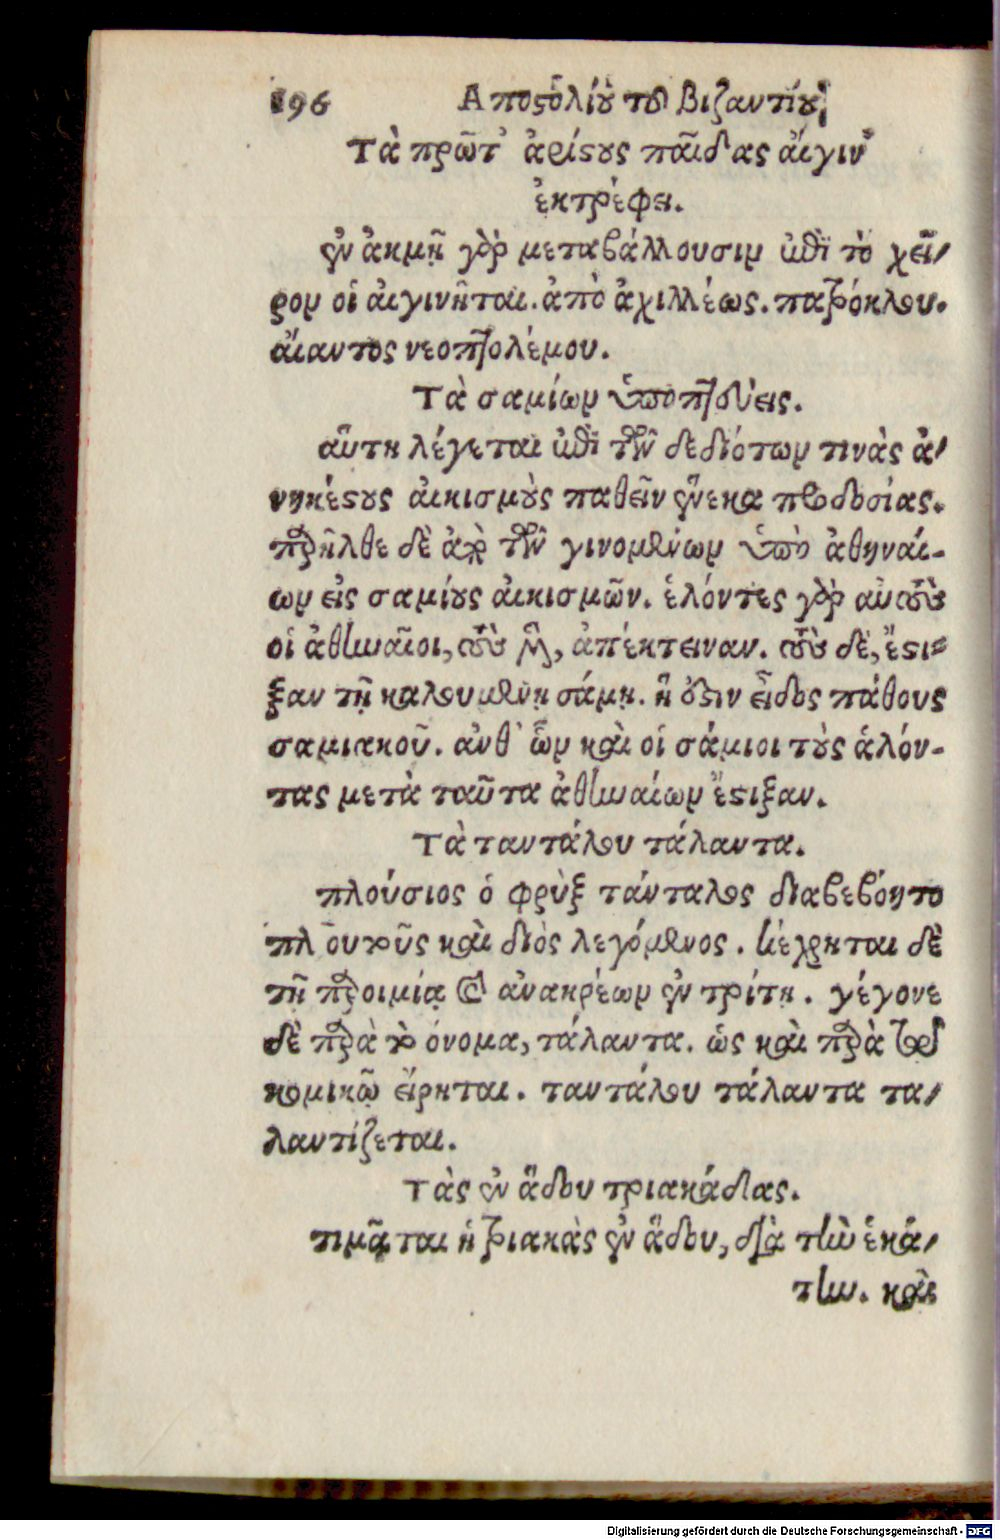 196 Αποστολίου τοῦ Βιζαντίου
Τὰ πρῶτ' ἀρίστους παῖδας αἴγιν'
ἐκτρέφει.
ἐν ἀκμῇ γὰρ μεταβάλλουσιν ἐπὶ τὸ χεῖ/
ρον οἱ αἰγινῆται. ἀπὸ ἀχιλλέως. πατρόκλου.
αἴαντος νεοπτολέμου.
Τὰ σαμίων ὑποπτεύεις.
αὕτη λέγεται ἐπὶ τῶν δεδιότων τινὰς ἀ/
νηκέστους αἰκισμοὺς παθεῖν ἕνεκα προδοσίας.
παρῆλθε δὲ ἀπὸ τῶν γινομένων ὑπὸ ἀθηναί-
ων εἰς σαμίους αἰκισμῶν. ἑλόντες γὰρ αὐτοὺς
οἱ ἀθηναῖοι, τοὺς μὲν, ἀπέκτειναν. τοὺς δὲ, ἔστι-
ξαν τῇ καλουμένῃ σάμῃ. ἥ ἐστιν εἶδος πάθους
σαμιακοῦ. ἀνθ' ὧν καὶ οἱ σάμιοι τοὺς ἁλόν-
τας μετὰ ταῦτα ἀθηναίων ἔστιξαν.
Τὰ ταντάλου τάλαντα.
πλούσιος ὁ φρὺξ τάνταλος διαβεβόητο
πλουτοῦς καὶ διὸς λεγόμενος. κέχρηται δὲ
τῇ παροιμίᾳ καὶ ἀνακρέων ἐν τρίτῃ. γέγονε
δὲ παρὰ τὸ ὄνομα, τάλαντα. ὡς καὶ παρὰ τῷ
κομικῷ εἴρηται. ταντάλου τάλαντα τα/
λαντίζεται.
Τὰς ἐν ἅδου τριακάδας.
τιμᾶται ἡ τριακὰς ἐν ἅδου, διὰ τὴν ἑκά/
την. καὶ
Digitalisierung gefördert durch die Deutsche Forschungsgemeinschaft - DFG